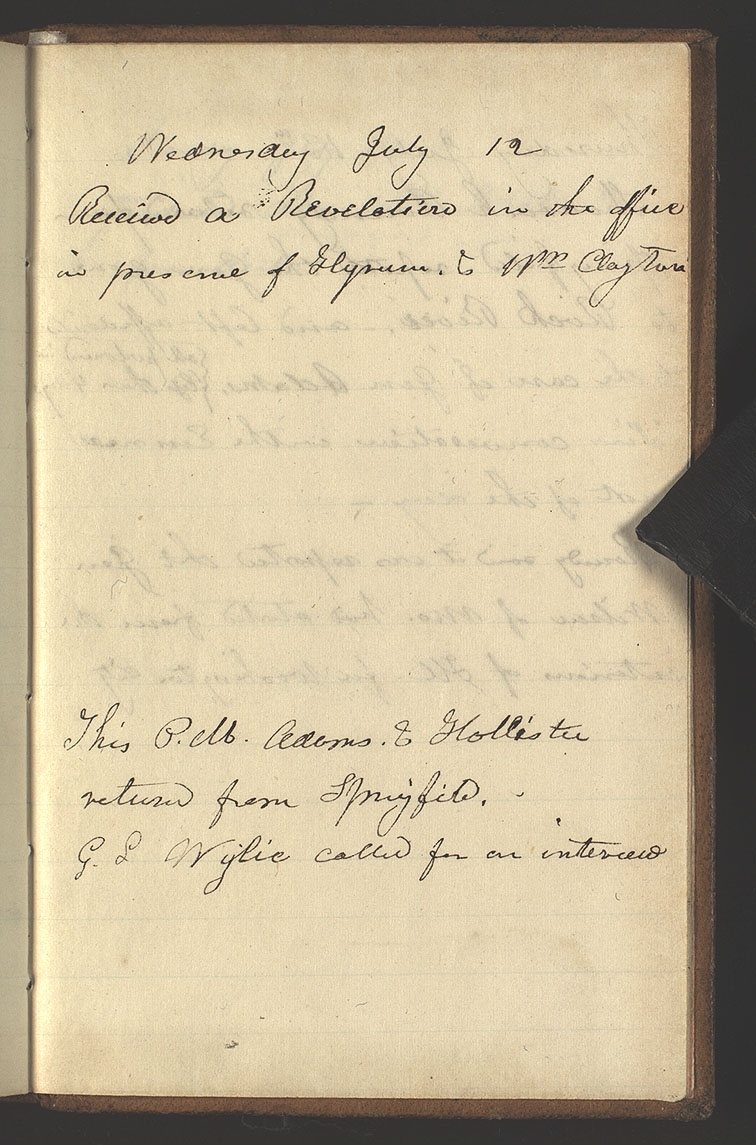 Wednesday July 12
Receivd a Revelation in the office
in presence of Hyrum. & Wm Clayton
This P.M. Adams. & Hollister
returnd from Springfild.
G. L Wylie called for an interview